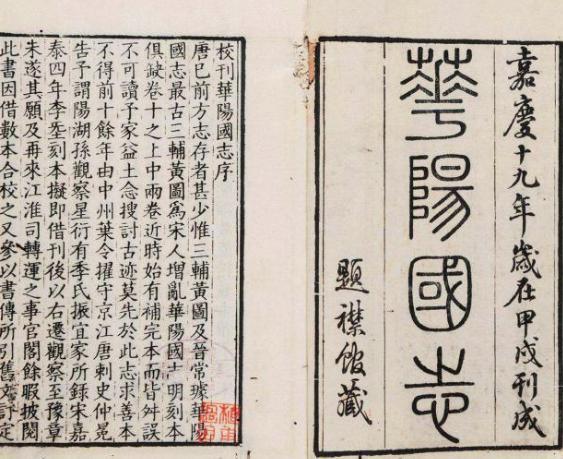 嘉慶十九年歲在甲戌刊成
華陽國志
題襟館藏
校刊華陽國志序
唐已前方志存者甚少惟三輔黃圖及晉常璩華陽
國志最古三輔黃圖爲宋人增亂華陽國志明刻本
俱缺卷十之上中兩卷近時始有補完本而皆舛誤
不可讀予家益土念搜討古迹莫先於此志求善本
不得前十餘年由中州葉令擢守京江唐刺史仲冕
告予謂陽湖孫觀察星衍有季氏振宜家所錄宋嘉
泰四年李𡌴刻本擬即借刊後以右遷觀察至豫章
未遂其願及再來江淮司轉運之事官閣餘暇披閱
此書因借數本合校之又參以書傳所引舊文詳定